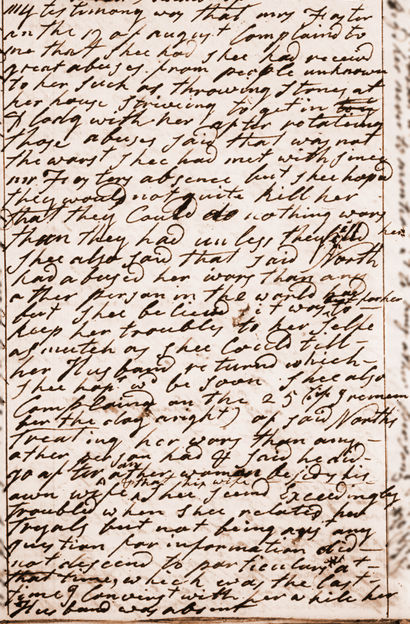 My testimony was that mrs Foster
on the 19 of august Complaind to
me that shee had shee had receivd
great abuses from people unknown
to her such as throwing stones at
her house striveing to get in
& long with her after relateing
those abuses said that was not
the worst shee had met with since
mr Fosters absence but shee hoped
they would not quite kill her
that they Could do nothing wors
than they had unless they kild her
shee also said that said North
had abused her wors than any
other person in the world
but shee beliend it was best for her to
keep her troubles to her selfe
as mutch as shee Could till
her Husband returnd which
shee hop'd wd be soon shee also
Complaind on the 25 (if I remem
ber the day aright) of said Norths
treating her wors than any
other person had & said he did
go after other women besids his
own wife shee seemd Exceedingly
troubled when shee related her
tryals but not being ask'd any
question for information did
not descend to particulars at
that time, which was the last
time I Convirst with her while her
Husband was absent